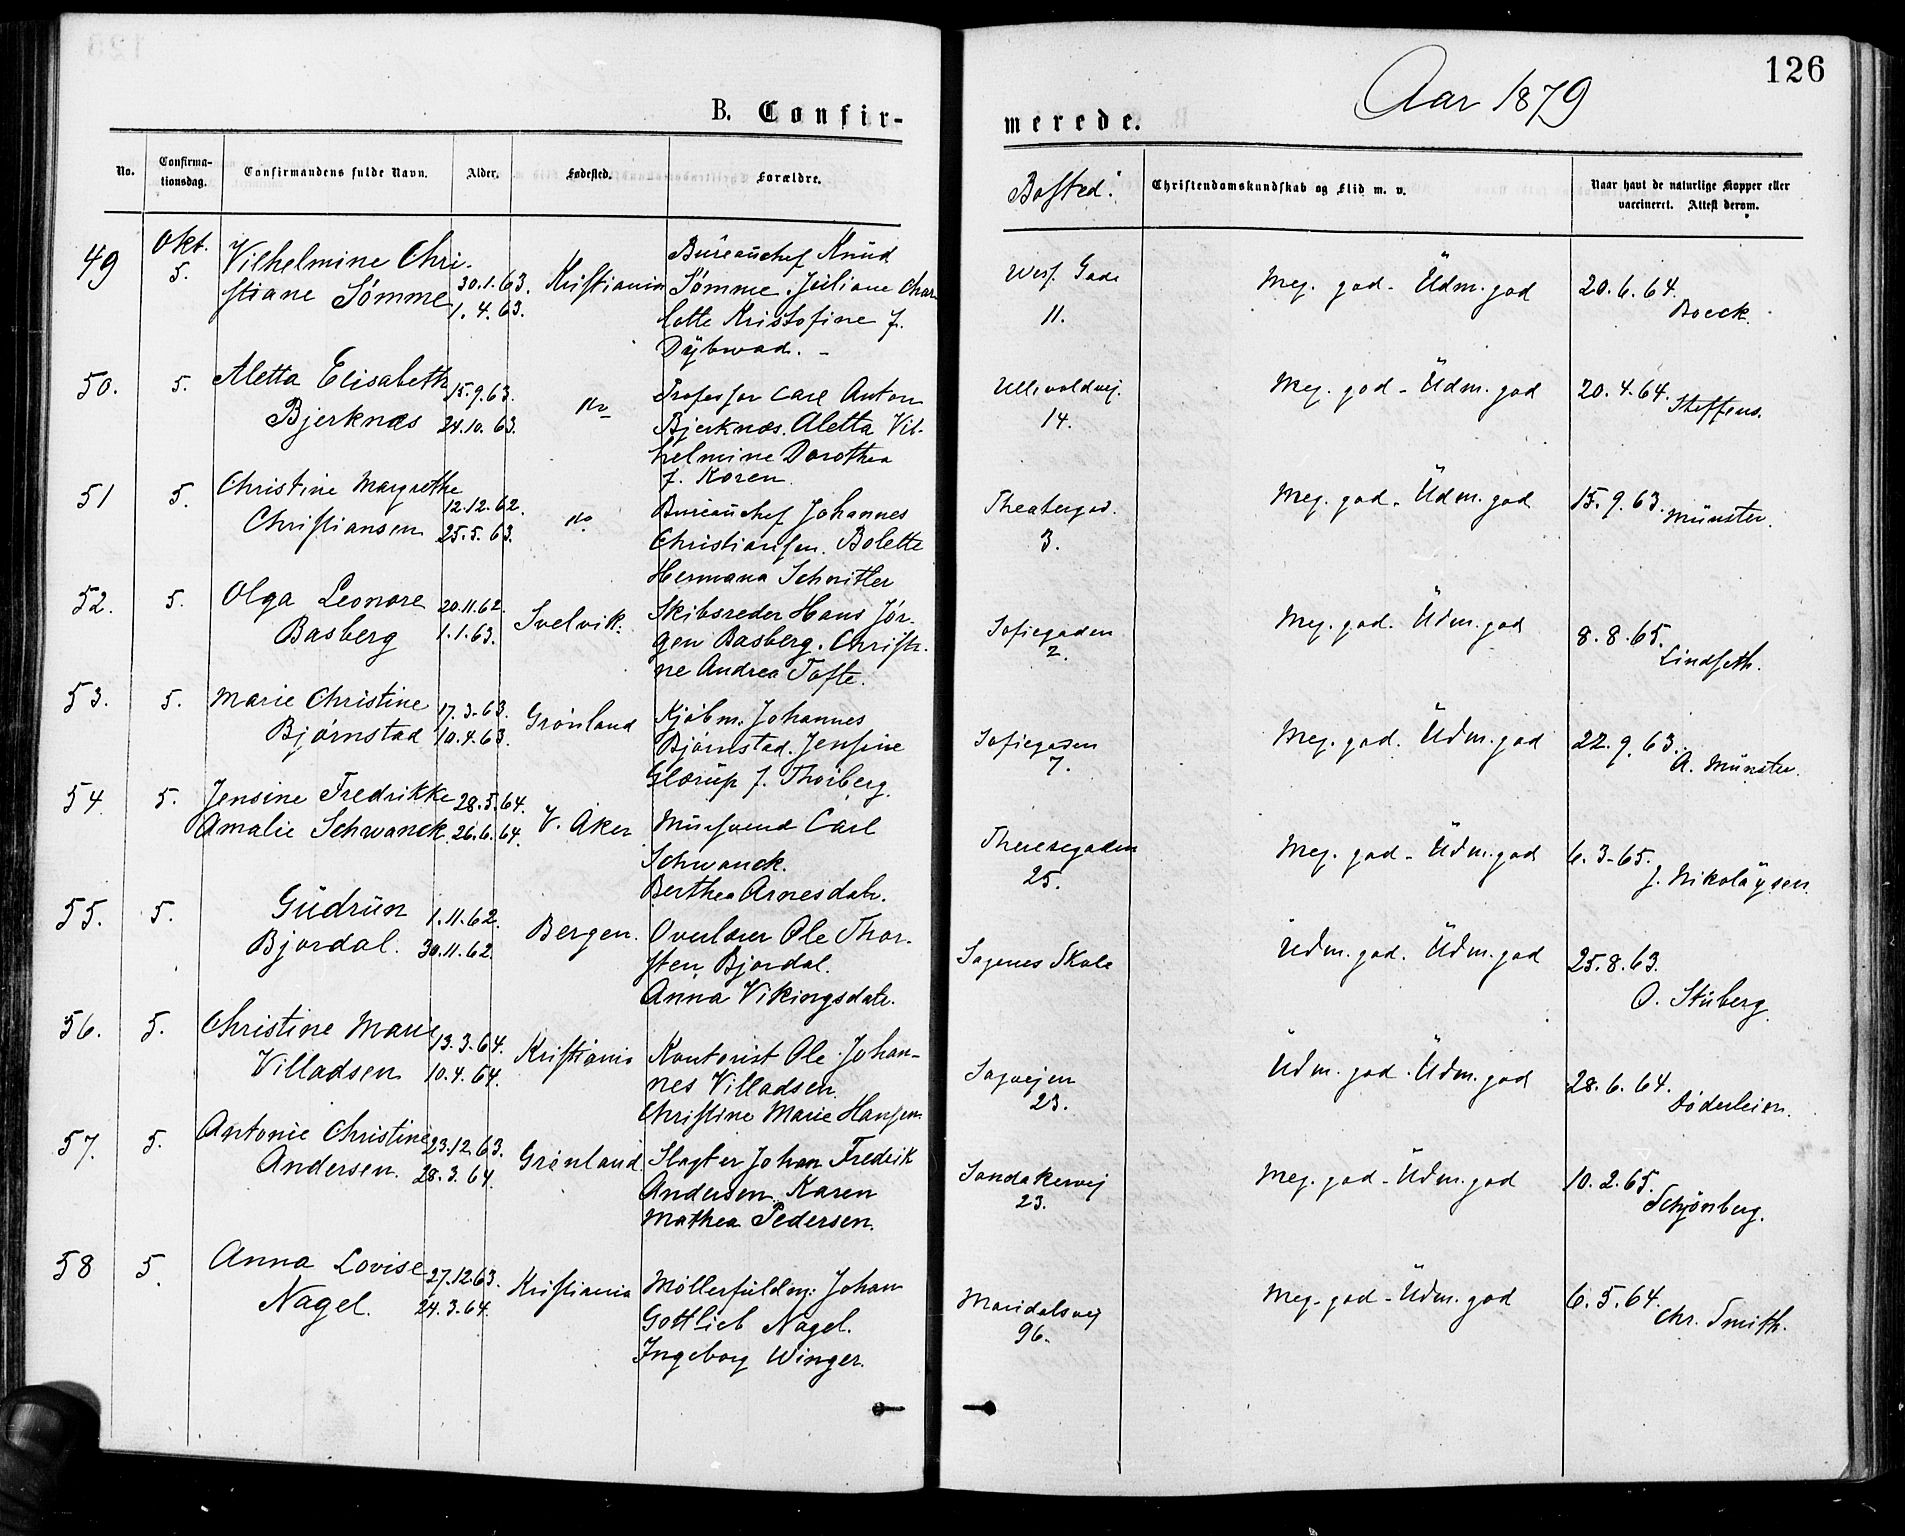 126
Aar 1879
B. Confir-
merede.
No.
Confirma-
tionsdag.
Confirmandens fulde Navn.
Alder.
Fødested.
Forældre.
Bosted.
Christendomskundskab og Flid m. v.
Naar havt de naturlige Kopper eller
vaccineret. Attest derom.
49 Okt. 5. Vilhelmine Chri-
stiane Sømme
30.1.63.
1. 4. 63.
Kristiania
Büreauchef Knud
Sømme. Juliane Char
lotte Kristofine f.
Dybwad. -
Gade
11.
Meg. god - Udm. god
20. 6. 64.
Boeck.
50. 5. Aletta Elisabeth
Bjerknæs
15.9.63.
24.10. 63.
do
Professor Carl Anton
Bjerknæs. Aletta Vil-
helmine Dorothea
f. Koren.
Ullevoldvej.
14.
Meg. god - Udm. god
20. 4. 64.
Steffens.
51 5. Christine Margrethe
Christiansen
12.12.62.
25.5. 63.
do
Bureauchef Johannes
Christiansen. Bolette
Hermana Schnitler
Theatergad.
3.
Meg. god - Udm. god
15. 9. 63.
Münster.
52. 5. Olga Leonore
Basberg
20.11.62.
1.1.63.
Svelvik.
Skibsreder Hans Jør-
gen Basberg. Christi-
ne Andrea Tofte.
Sofiegaden
2.
Meg. god. Udm. god
8. 8. 65.
Lindseth.
53. 5. Marie Christine
Bjørnstad
17. 3. 63.
10.4.63.
Grønland
Kjøbm. Johannes
Bjørnstad. Jensine
Glærup f. Thoiberg.
Sofiegaden
7.
Meg. god. Udm. god
22. 9. 63.
A. Münster.
54. 5. Jensine Fredrikke
Amalie Schwanck.
28.5.64.
26.6.64.
V. Aker
Mursvend Carl
Schwanck.
Berthea Arnesdatr.
Theresegaden
25.
Meg. god - Udm. god
6. 3. 65.
J. Nikolaysen.
55. 5. Gudrun
Bjordal.
1.11.62.
30.11.62.
Bergen.
Overlærer Ole Thor-
sten Bjordal.
Anna Vikingsdatr.
Sagenes Skole
Udm. god. Udm. god
25. 8. 63.
O. Stüberg
56. 5. Christine Marie
Villadsen
13. 3. 64.
10. 4. 64.
Kristiania
Kontorist Ole Johan-
nes Villadsen.
Christine Marie Hansen
Sagvejen
23.
Udm. god. Udm. god
28. 6. 64.
Döderlein.
57. 5. Antonie Christine
Andersen.
23.12.63.
28. 3. 64.
Grønland
Slagter Johan Fredrik
Andersen. Karen
Mathea Pedersen.
Sandakervej
23.
Meg. god - Udm. god
10. 2. 65.
Schjønberg.
58 5. Anna Lovise
Nagel.
27.12.63.
24.3.64.
Kristiania
Møllerfuldm: Johan
Gottlieb Nagel.
Ingeborg Winger.
Maridalsvej
96.
Meg. god - Udm. god
6. 5. 64.
Chr. Smith.